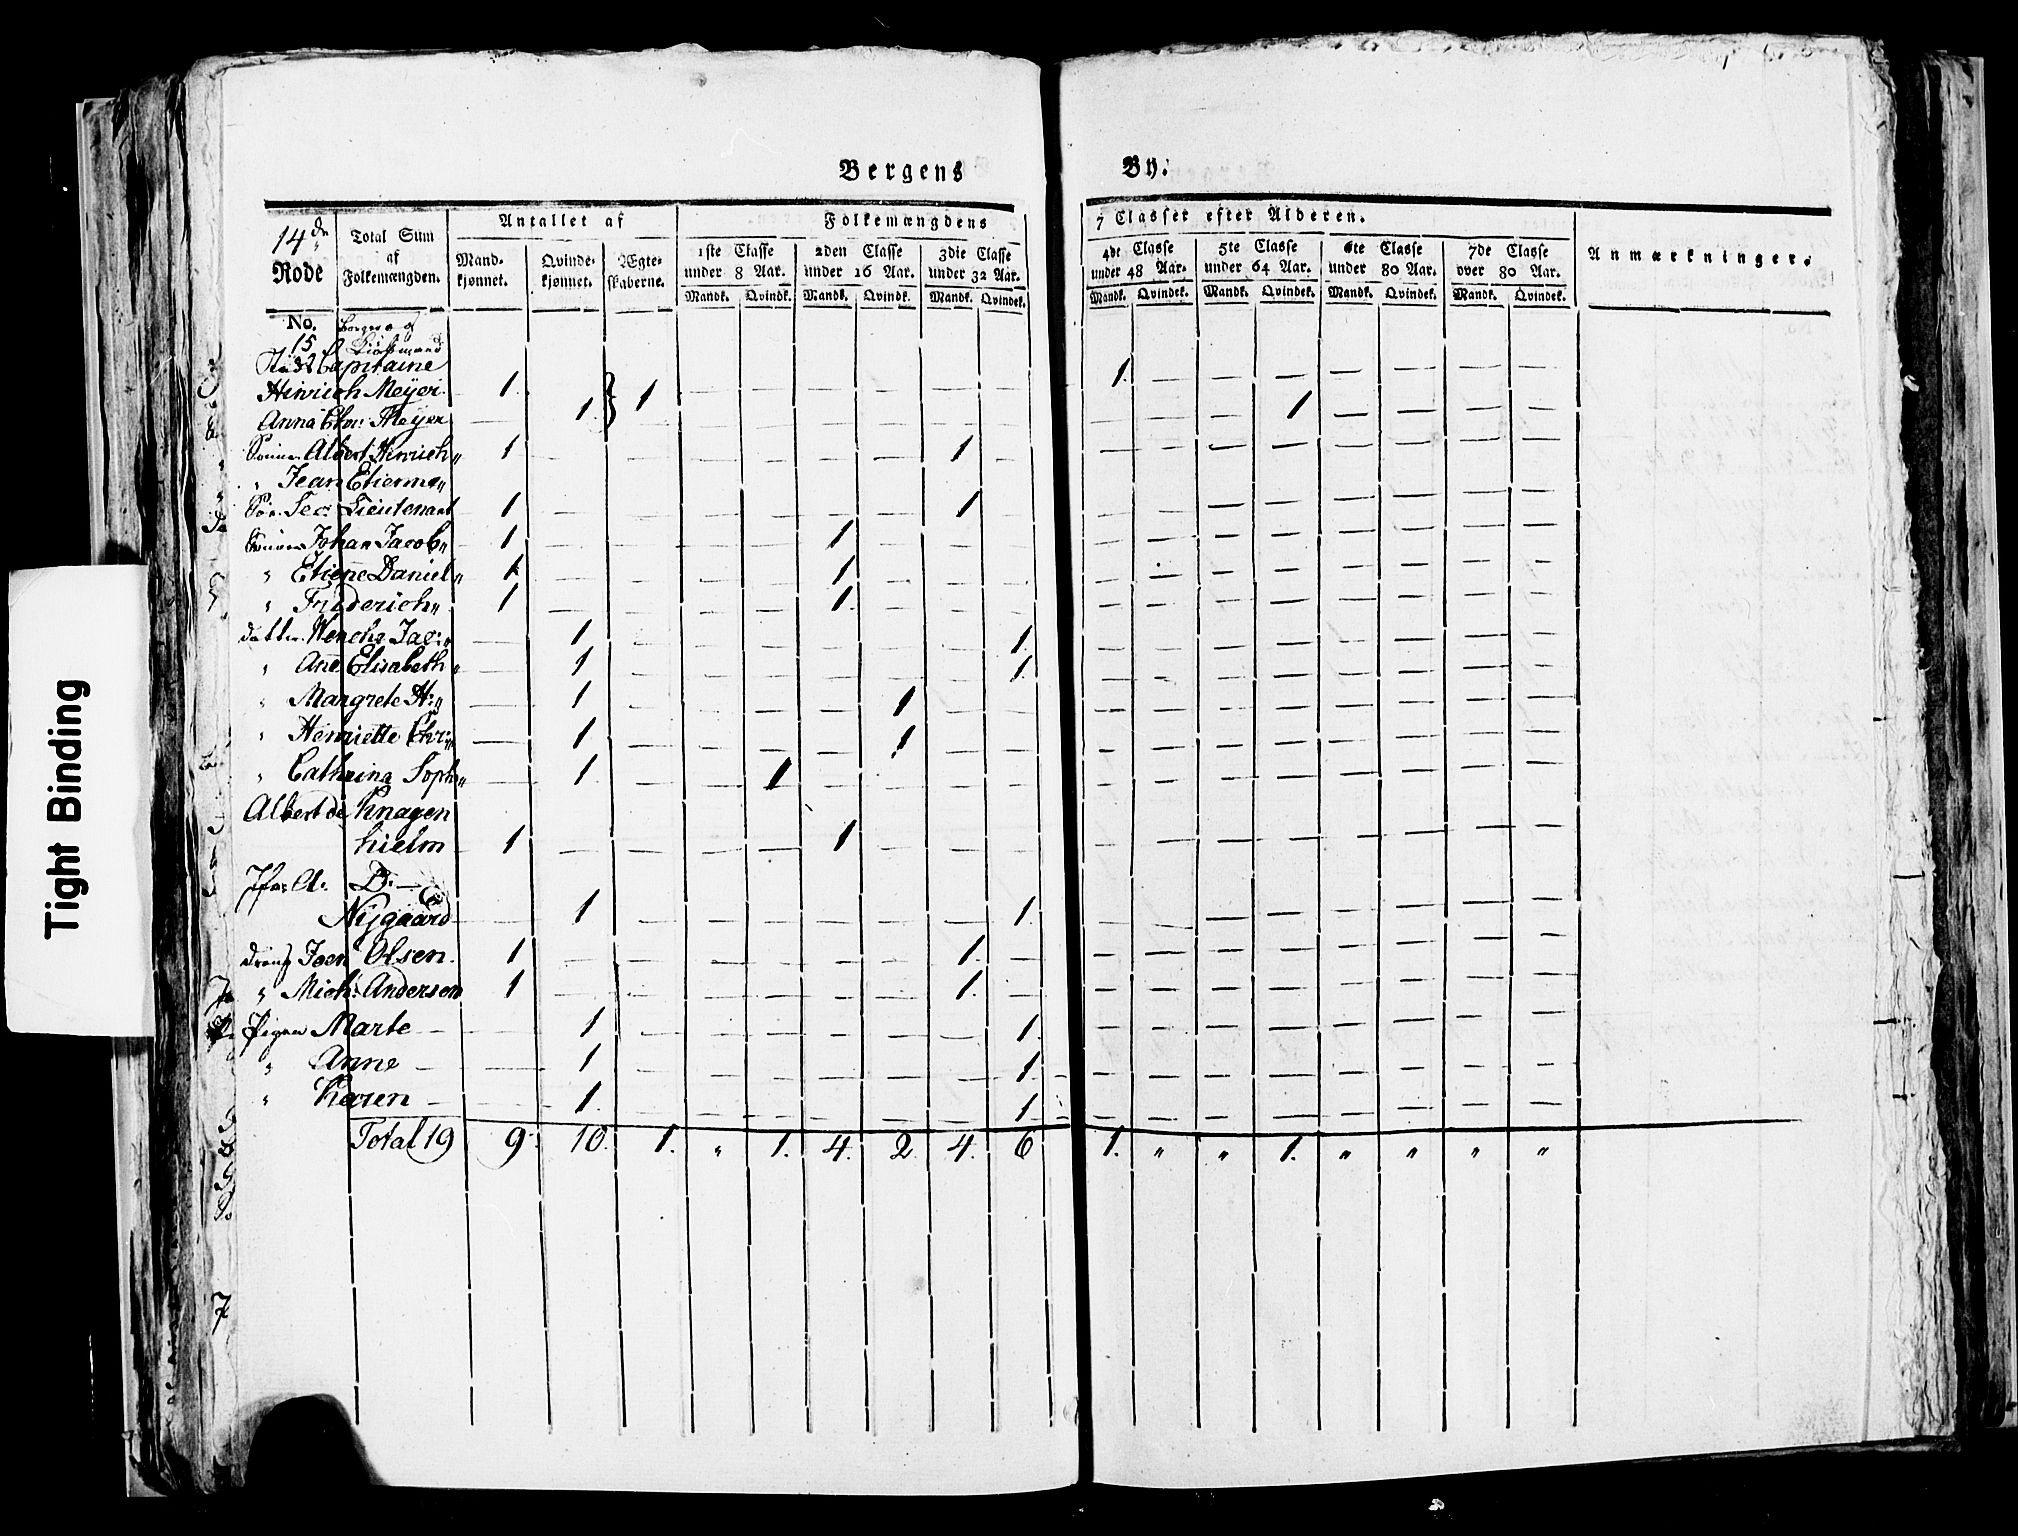 Bergens By:
14de Rode
Total Sum af Folkemængden.
Antallet af
Mand-kjønnet.
Qvinde-kjønnet.
Ægte-skaberne.
Folkemængdens 7 Classer efter Alderen.
1ste Classe under 8 Aar.
2den Classe under 16 Aar.
3die Classe under 32 Aar.
4de Classe under 48 Aar.
5te Classe under 64 Aar.
6te Classe under 80 Aar.
7de Classe over 80 Aar.
Mandk. Qvindk. Mandk. Qvindk. Mandk. Qvindek. Mandk. Qvindek. Mandk. Qvindek. Mandk. Qvindek. Mandk. Qvindek.
Anmærkninger.
No.
15
Capitaine
Hinrich Meÿer. 1. 1 1.
Anna Chr: Meÿer 1. 1
Sønner Albert Hinrich „ 1 — — — — — 1 — — — — — — — — —
„ Jean Etienne „
Sec: Lieutenant 1 — — — — — 1 — — — — — — — — —
Sønner Johan Jacob „ 1 — — — — 1 — — — — — — — — — —
„ Etiene Daniel „ 1 — — — — 1 — — — — — — — — — —
„ Friderich „ 1 — — — — 1. — — — — — — — — — —
datter Wenche Jac: „ — 1 — — — — — — 1 — — — — — — — —
„ Ane Elisabeth „ — 1 — — — — — — 1 — — — — — — — —
„ Mangrete H: „ — 1 — — — — 1 — — — — — — — — — —
„ Henriette Chr: „ — 1 — — — — 1 — — — — — — — — — —
„ Cathrina Soph: „ — 1 — — 1 — — — — — — — — — — — —
Albert de Knagen
hielm 1 — — — — 1 — — — — — — — — — — —
Jfr: A: D: —
Nÿgaard — 1 — — — — — — 1. — — — — — — — —
dreng Joen Olsen. 1 — — — — — — 1. — — — — — — — — —
„ Mich: Andersen 1 — — — — — — 1. — — — — — — — — —
Piger Marte — — 1 — — — — — — 1 — — — — — — — —
„ Anne — — 1 — — — — — — 1 — — — — — — — —
„ Karen — 1. — — — — — — 1 — — — — — — — —
Total 19 9. 10. 1. „ 1. 4. 2 4. 6 1. „ „ 1. „ „ „ „
Tight Binding